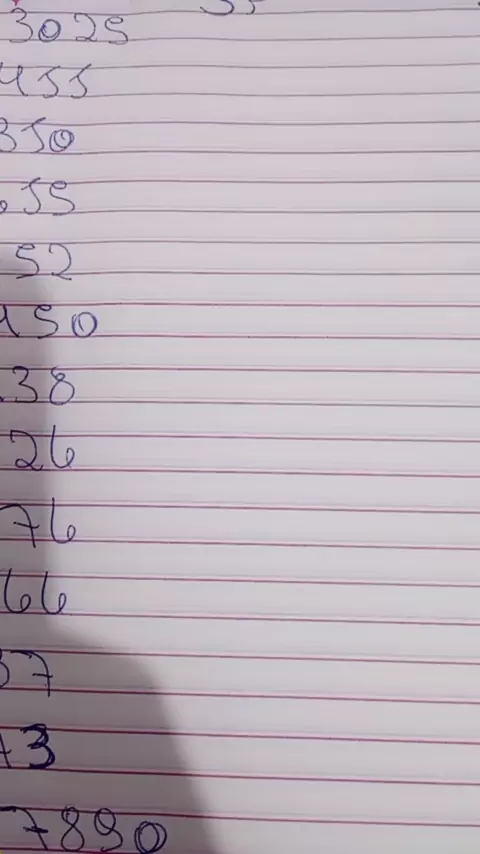 3025
455
350
55
52
450
38
26
76
66
37
3
7890